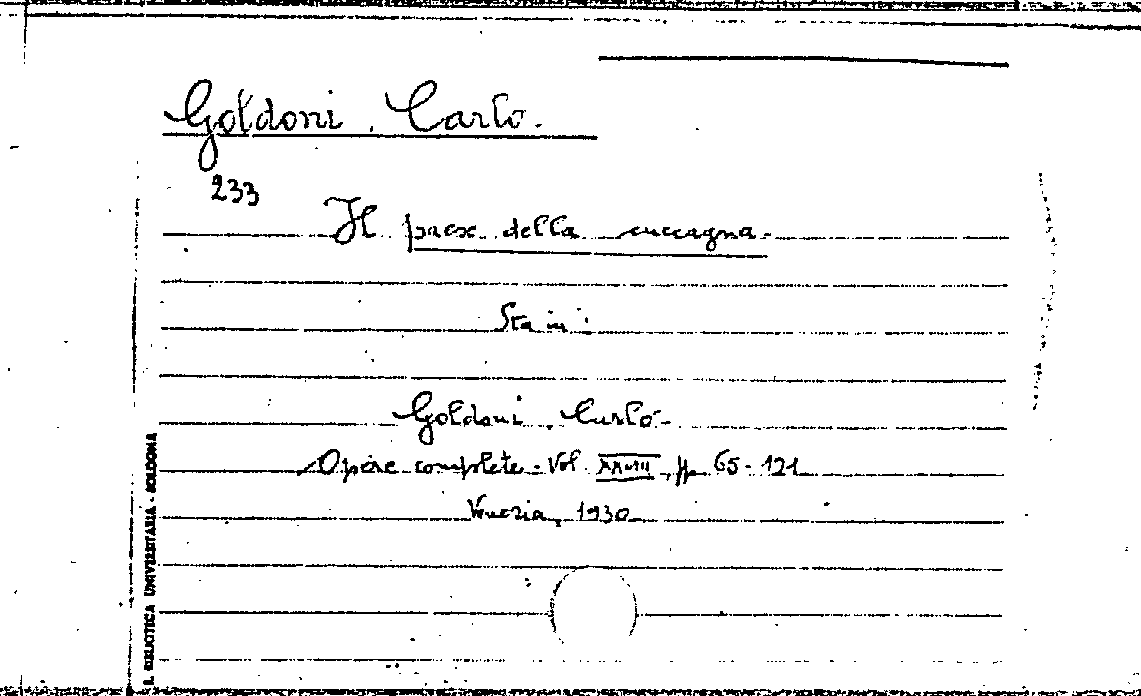 Goldoni, Carlo.
233
Il paese della cuccagna.
Sta in:
Goldoni, Carlo.
Opere complete. Vol. XXVIII, pp 65-121
Venezia, 1930
R. BIBLIOTECA UNIVERSITARIA - BOLOGNA